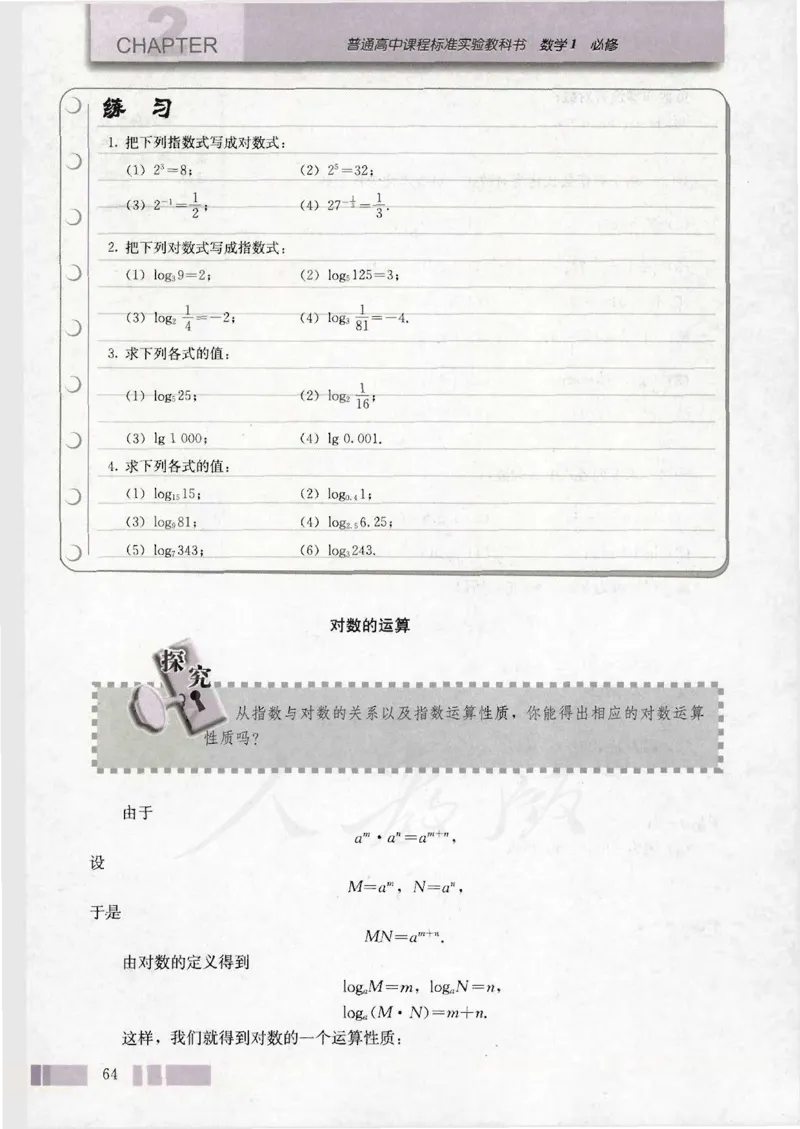 2
CHAPTER
普通高中课程标准实验教科书 数学1 必修
练 习
1. 把下列指数式写成对数式：
(1) 2³=8； (2) 2⁵=32；
(3) 2⁻¹=1/2； (4) 27^(-1/3)=1/3.
2. 把下列对数式写成指数式：
(1) log₃9=2； (2) log₅125=3；
(3) log₂ 1/4=-2； (4) log₃ 1/81=-4.
3. 求下列各式的值：
(1) log₅25； (2) log₂ 1/16；
(3) lg 1 000； (4) lg 0.001.
4. 求下列各式的值：
(1) log₁₅15； (2) log₀.₄1；
(3) log₉81； (4) log₂.₅6.25；
(5) log₇343； (6) log₃243.
对数的运算
探究
从指数与对数的关系以及指数运算性质，你能得出相应的对数运算
性质吗？
由于
aᵐ·aⁿ=aᵐ⁺ⁿ，
设
M=aᵐ，N=aⁿ，
于是
MN=aᵐ⁺ⁿ.
由对数的定义得到
logₐM=m，logₐN=n，
logₐ(M·N)=m+n.
这样，我们就得到对数的一个运算性质：
64
人教版